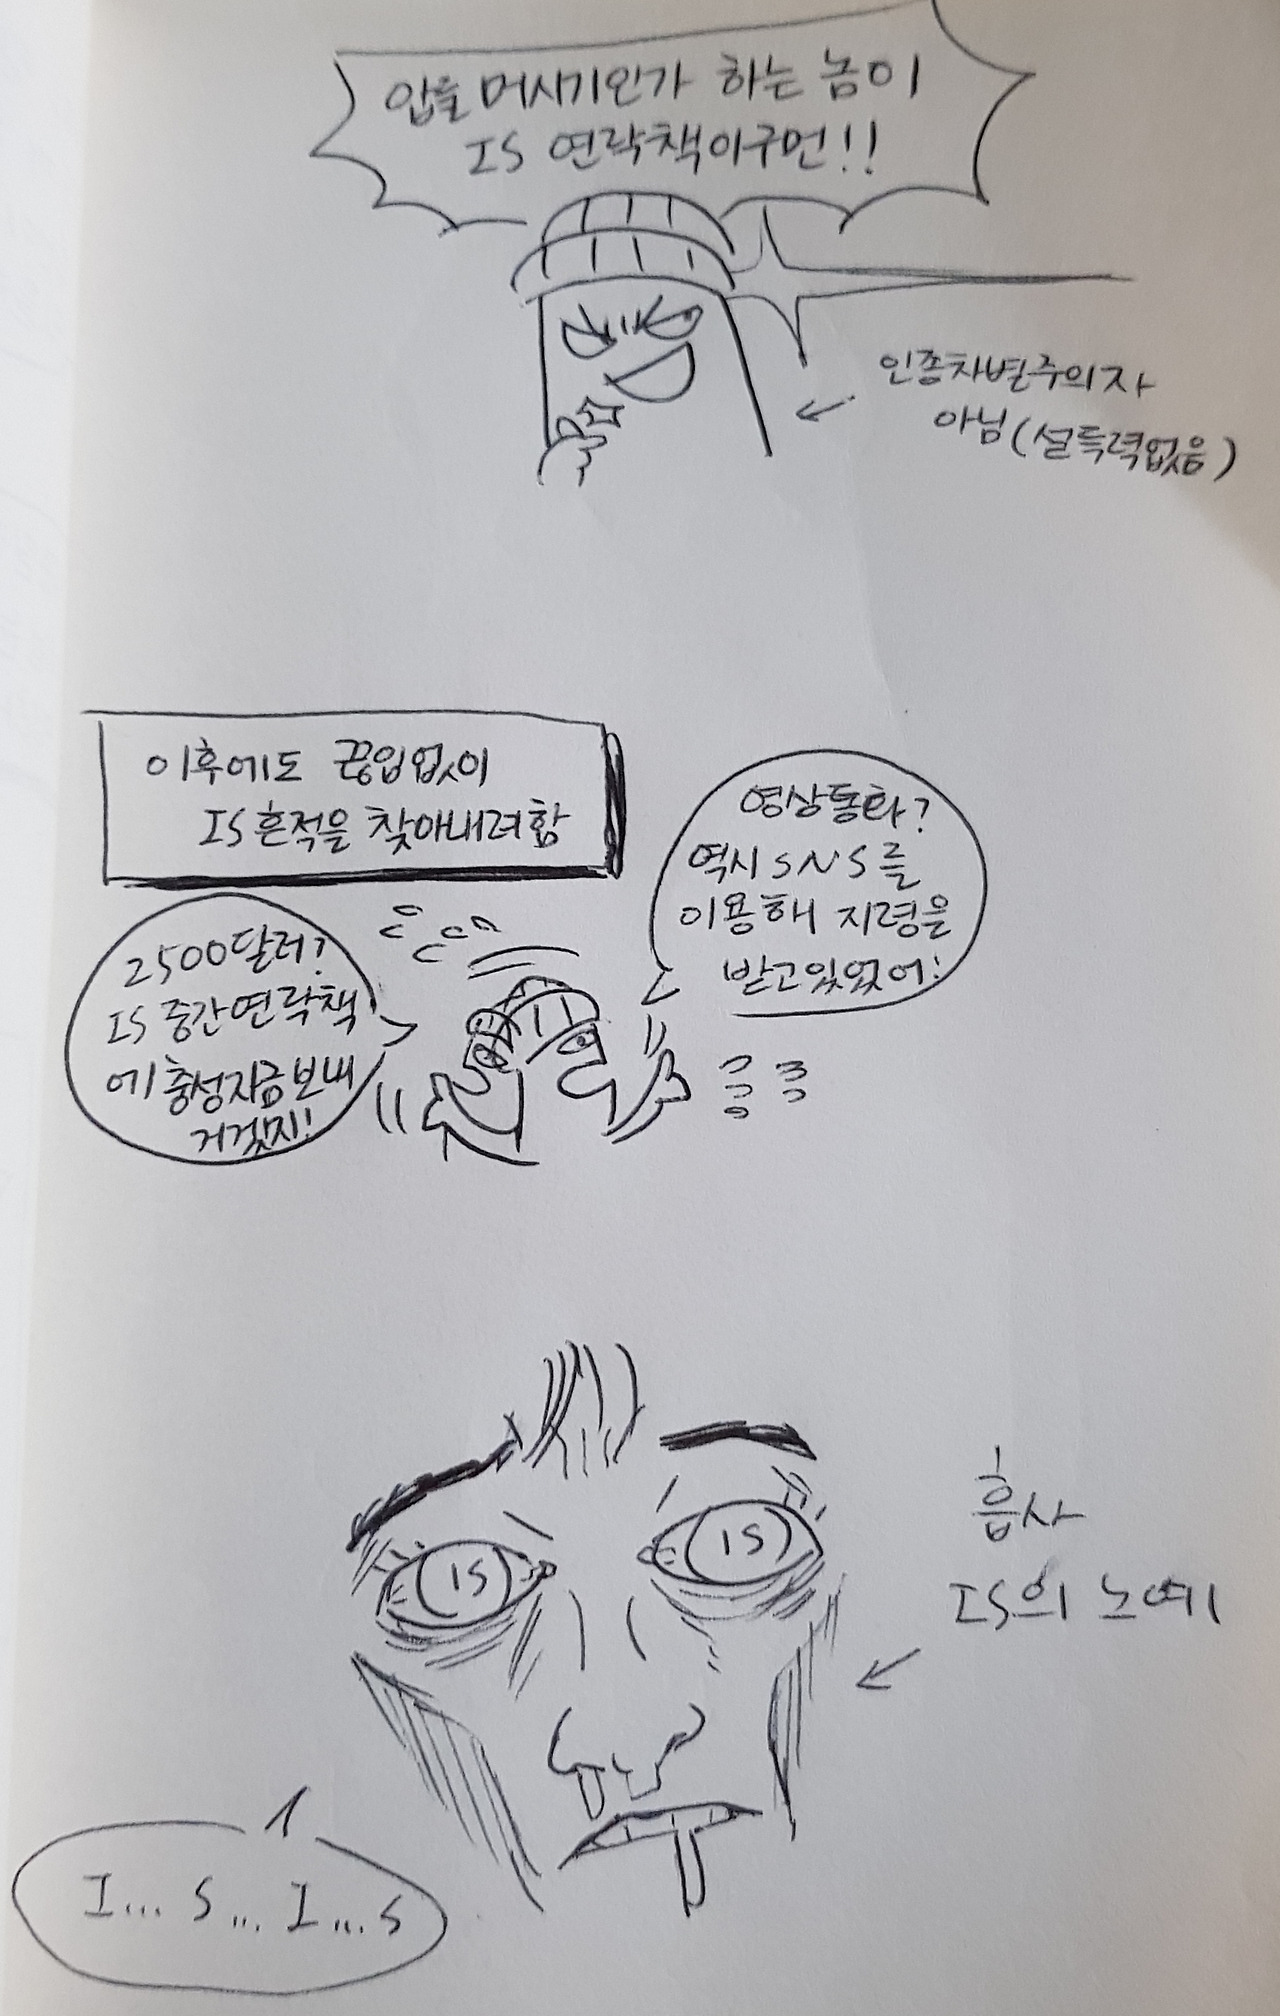 압둘 머시기인가 하는 놈이
IS 연락책이구먼!!
인종차별주의자
아님(설득력없음)
이후에도 끊입없이
IS흔적을 찾아내려함
영상통화?
역시 SNS를
이용해 지령을
받고있었어!
2500달러?
IS 중간연락책
에 충성자금보내
거겠지!
흡사
IS의 노예
IS
IS
I... S... I... S